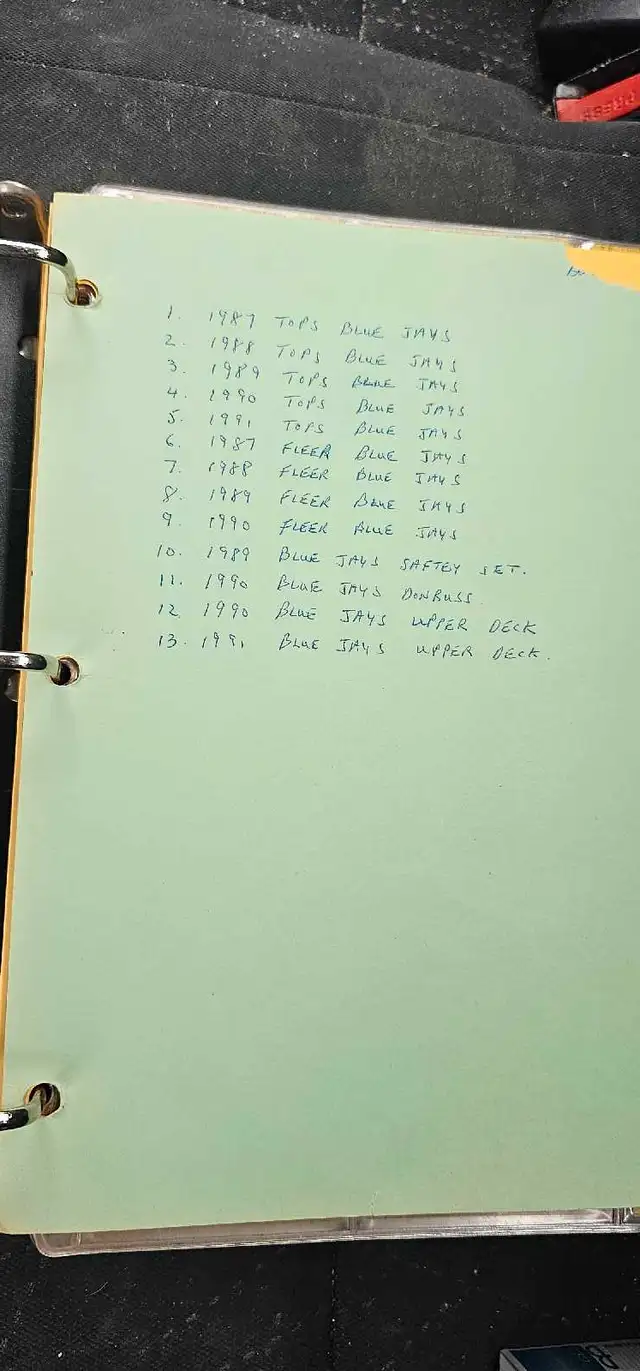 1. 1987 TOPS BLUE JAYS
2. 1988 TOPS BLUE JAYS
3. 1989 TOPS BLUE JAYS
4. 1990 TOPS BLUE JAYS
5. 1991 TOPS BLUE JAYS
6. 1987 FLEER BLUE JAYS
7. 1988 FLEER BLUE JAYS
8. 1989 FLEER BLUE JAYS
9. 1990 FLEER BLUE JAYS
10. 1989 BLUE JAYS SAFTEY SET.
11. 1990 BLUE JAYS DONRUSS
12. 1990 BLUE JAYS UPPER DECK
13. 1991 BLUE JAYS UPPER DECK.